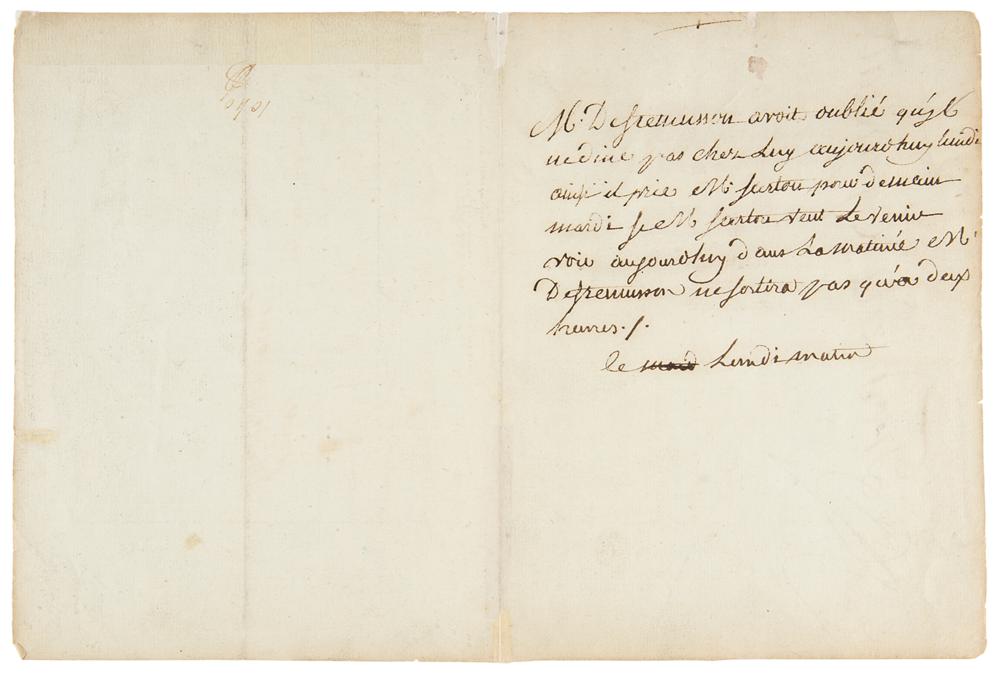 M. Defremusson avoit oublié qu'yl
ne dine pas chez Luy aujourdhuy lundi
ainsi il prie M. Sartou pour demain
mardi se M Sartou veut Le venir
voir aujourdhuy dans La matinée M.
Defremusson ne sortira pas qu'a deux
heures./.
le Lundi matin